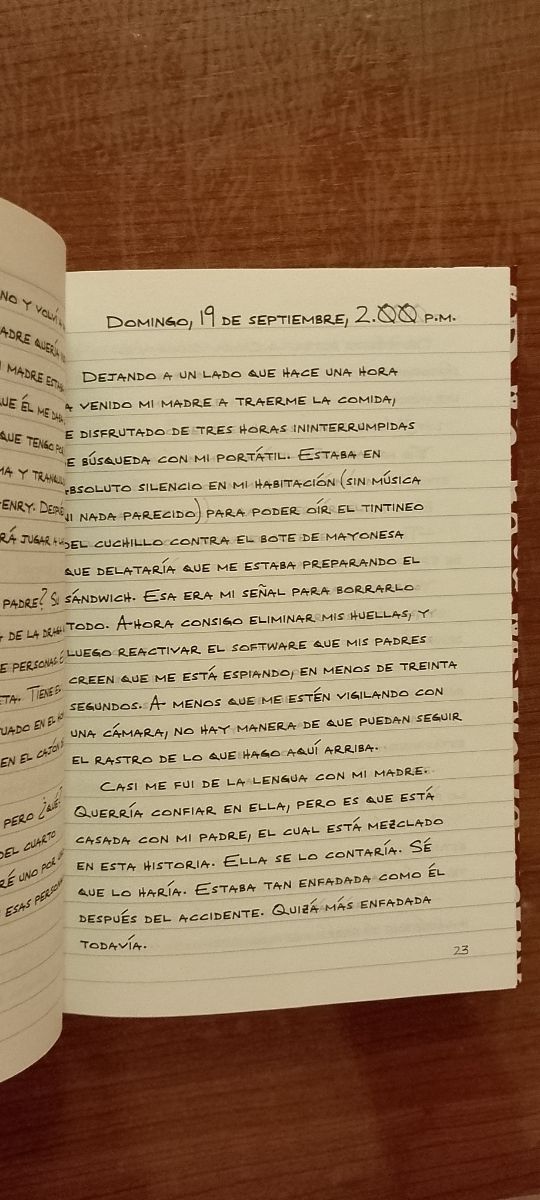 Y VOLVÍ
QUERÍA
MADRE
ÉL ME
QUE TENGO
Y
JUGAR A
PADRE? SU
DE LA
PERSONAS
TIENE EL
EN EL
EN EL CAJÓN
PERO ¿QUÉ?
DEL CUARTO
UNO POR
ESAS
DOMINGO, 19 DE SEPTIEMBRE, 2.00 P.M.
DEJANDO A UN LADO QUE HACE UNA HORA
A VENIDO MI MADRE A TRAERME LA COMIDA,
E DISFRUTADO DE TRES HORAS ININTERRUMPIDAS
E BÚSQUEDA CON MI PORTÁTIL. ESTABA EN
BSOLUTO SILENCIO EN MI HABITACIÓN (SIN MÚSICA
NI NADA PARECIDO) PARA PODER OÍR EL TINTINEO
DEL CUCHILLO CONTRA EL BOTE DE MAYONESA
QUE DELATARÍA QUE ME ESTABA PREPARANDO EL
SÁNDWICH. ESA ERA MI SEÑAL PARA BORRARLO
TODO. AHORA CONSIGO ELIMINAR MIS HUELLAS, Y
LUEGO REACTIVAR EL SOFTWARE QUE MIS PADRES
CREEN QUE ME ESTÁ ESPIANDO, EN MENOS DE TREINTA
SEGUNDOS. A MENOS QUE ME ESTÉN VIGILANDO CON
UNA CÁMARA, NO HAY MANERA DE QUE PUEDAN SEGUIR
EL RASTRO DE LO QUE HAGO AQUÍ ARRIBA.
CASI ME FUI DE LA LENGUA CON MI MADRE.
QUERRÍA CONFIAR EN ELLA, PERO ES QUE ESTÁ
CASADA CON MI PADRE, EL CUAL ESTÁ MEZCLADO
EN ESTA HISTORIA. ELLA SE LO CONTARÍA. SÉ
QUE LO HARÍA. ESTABA TAN ENFADADA COMO ÉL
DESPUÉS DEL ACCIDENTE. QUIZÁ MÁS ENFADADA
TODAVÍA.
23